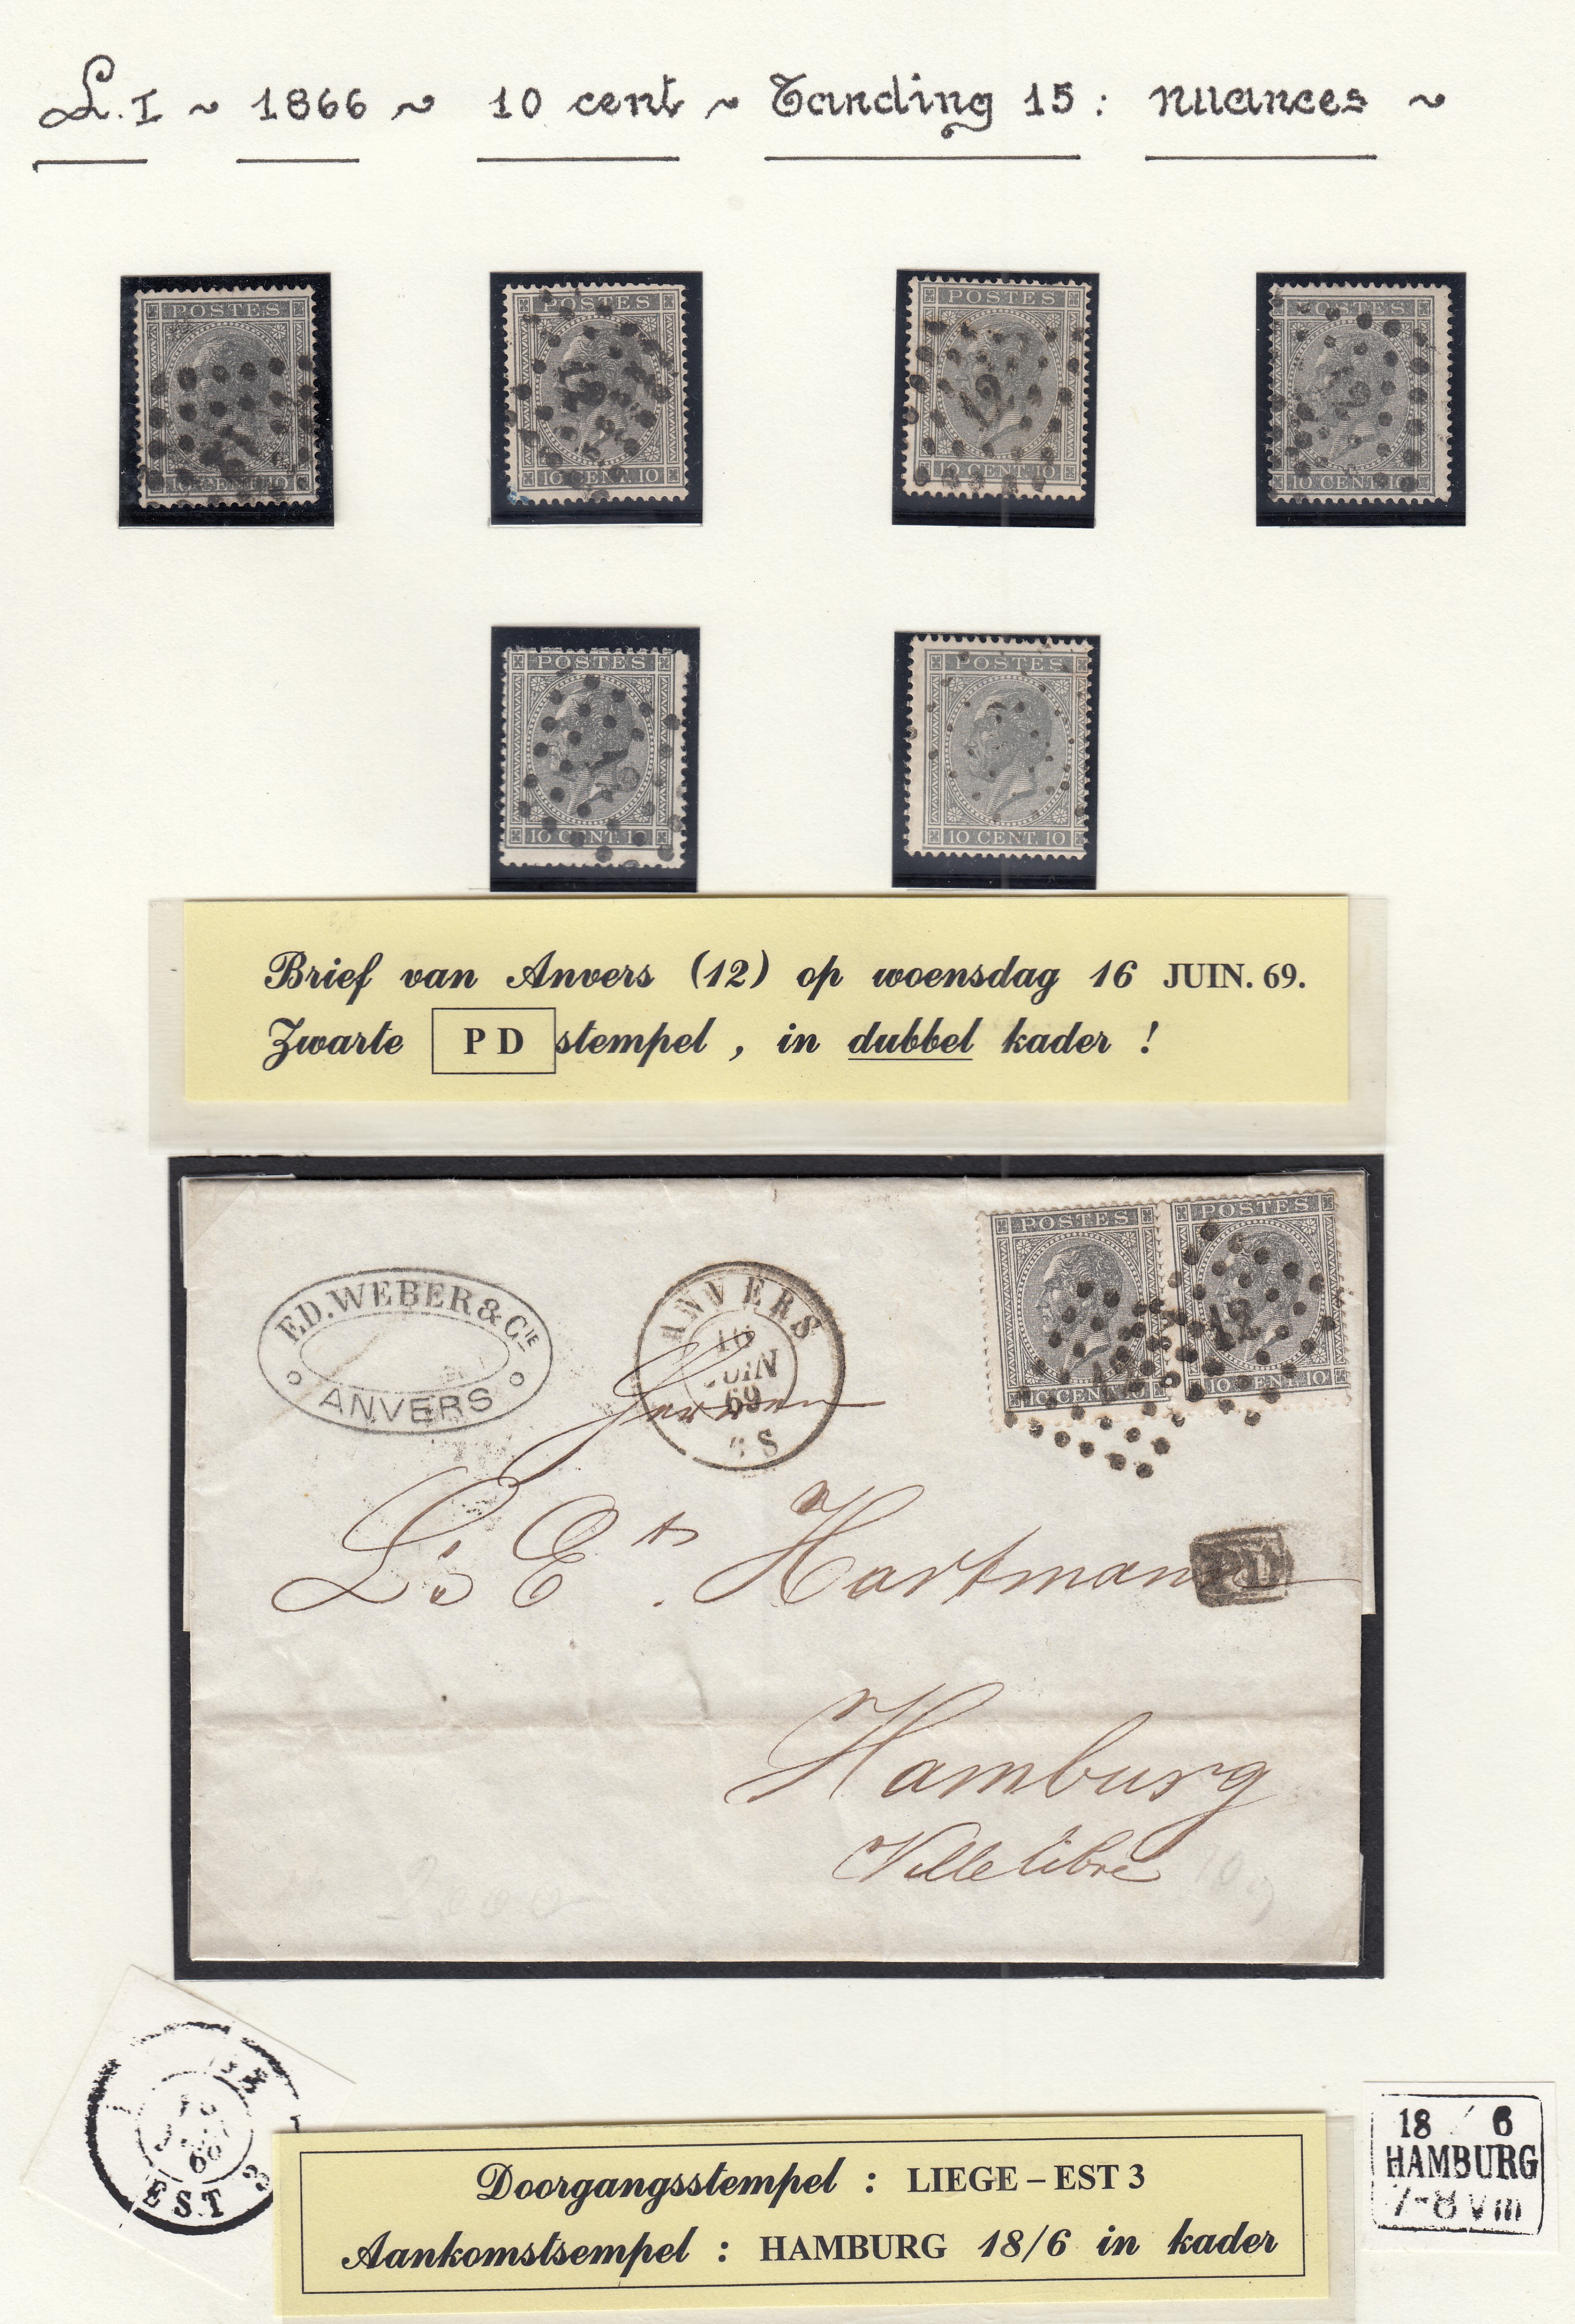 L.I ~ 1866 ~ 10 cent ~ Tanding 15 : nuances ~
POSTES POSTES POSTES POSTES
10 CENT. 10 10 CENT. 10 10 CENT. 10 10 CENT. 10
POSTES POSTES
10 CENT. 1 10 CENT. 10
Brief van Anvers (12) op woensdag 16 JUIN. 69.
Zwarte PD stempel , in dubbel kader !
POSTES POSTES
12
10 CENT. 10 10 CENT. 10
ED. WEBER & CIE
ANVERS
ANVERS
16
JUIN
69
S
Herren
Hartmann
PD
Hamburg
Ville libre
EST 3
18 / 6
HAMBURG
7-8 Vm
Doorgangsstempel : LIEGE – EST 3
Aankomstsempel : HAMBURG 18/6 in kader